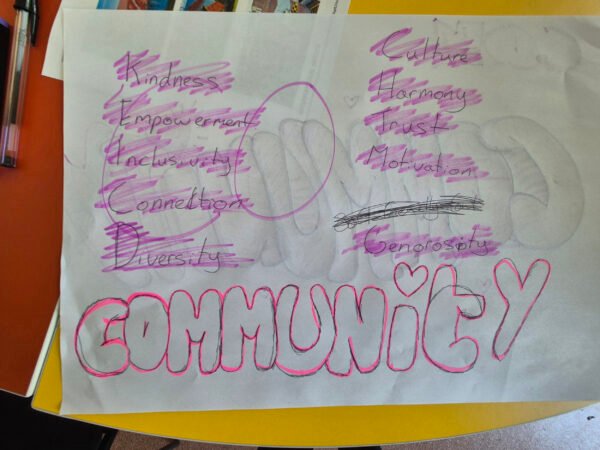 Kindness
Empowerment
Inclusivity
Connection
Diversity
Culture
Harmony
Trust
Motivation
Genorosity
COMMUNITY